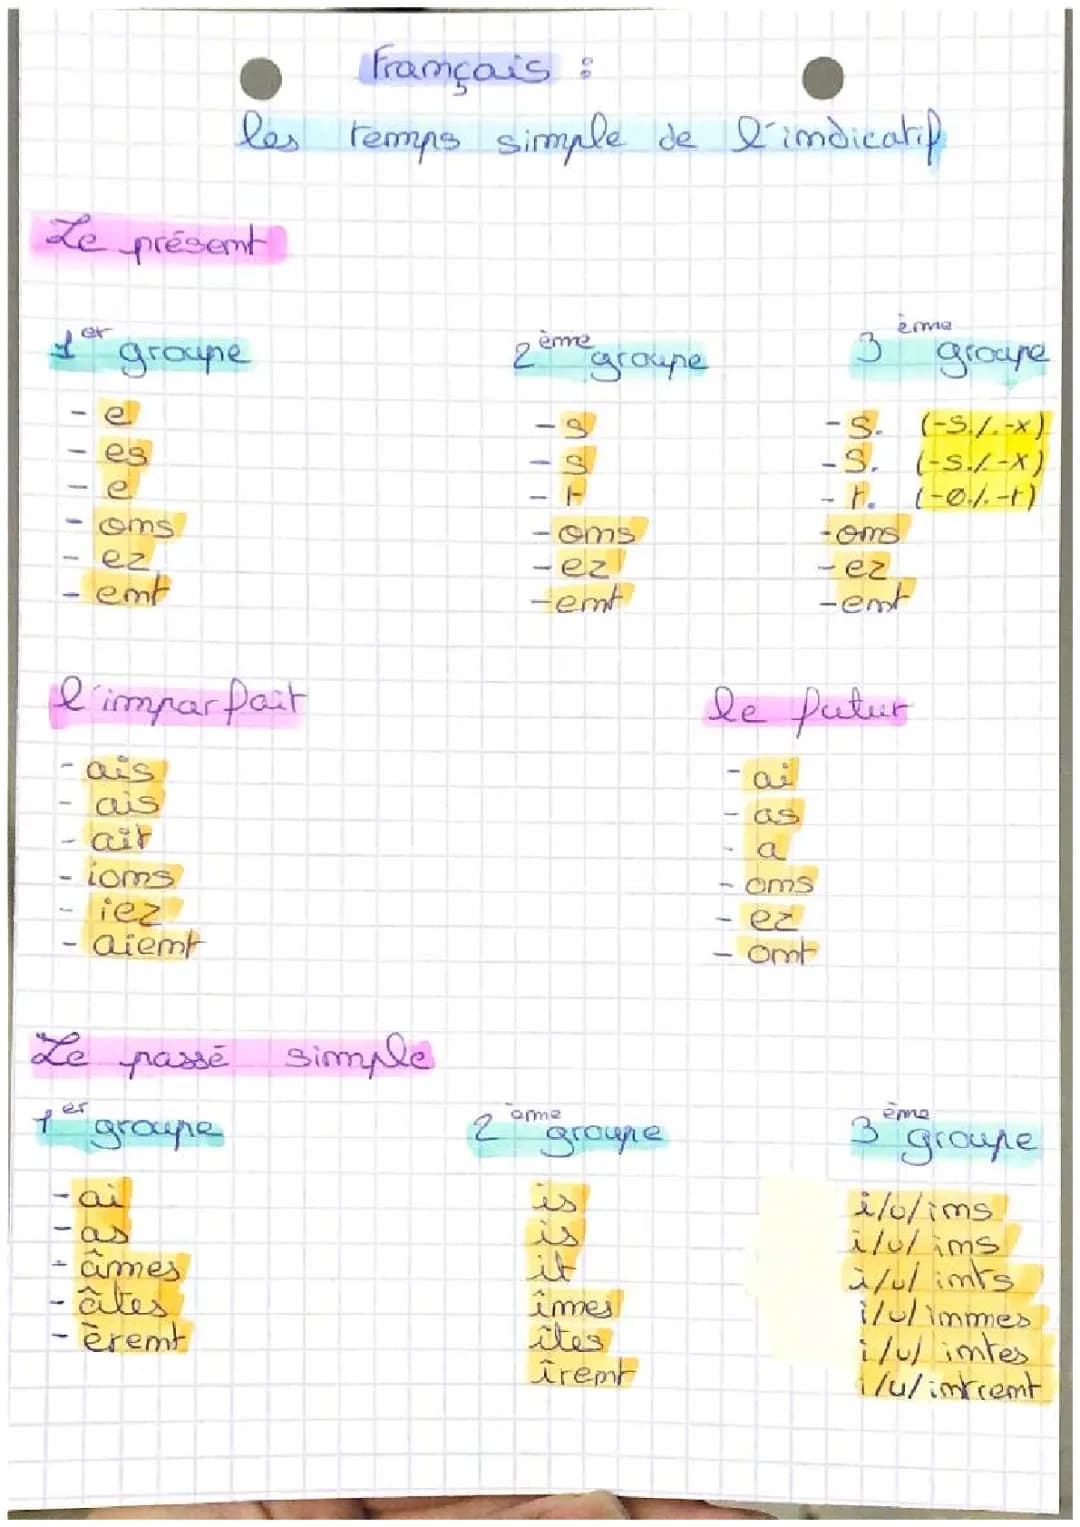 Français :
les temps simple de l'indicatif
Le présent
1er groupe
- e
- es
- e
- ons
- ez
- ent
2ème groupe
- s
- s
- t
- ons
- ez
- ent
3ème groupe
- s. (-s./.-x)
- s. (-s./.-x)
- t. (-ø./.-t)
- ons
- ez
- ent
l'imparfait
- ais
- ais
- ait
- ions
- iez
- aient
le futur
- ai
- as
- a
- ons
- ez
- ont
Le passé simple
1er groupe
- ai
- as
- âmes
- âtes
- èrent
2ème groupe
is
is
it
îmes
îtes
irent
3ème groupe
i/u/ins
i/u/ins
i/u/ints
i/u/inmes
i/u/intes
i/u/intrent